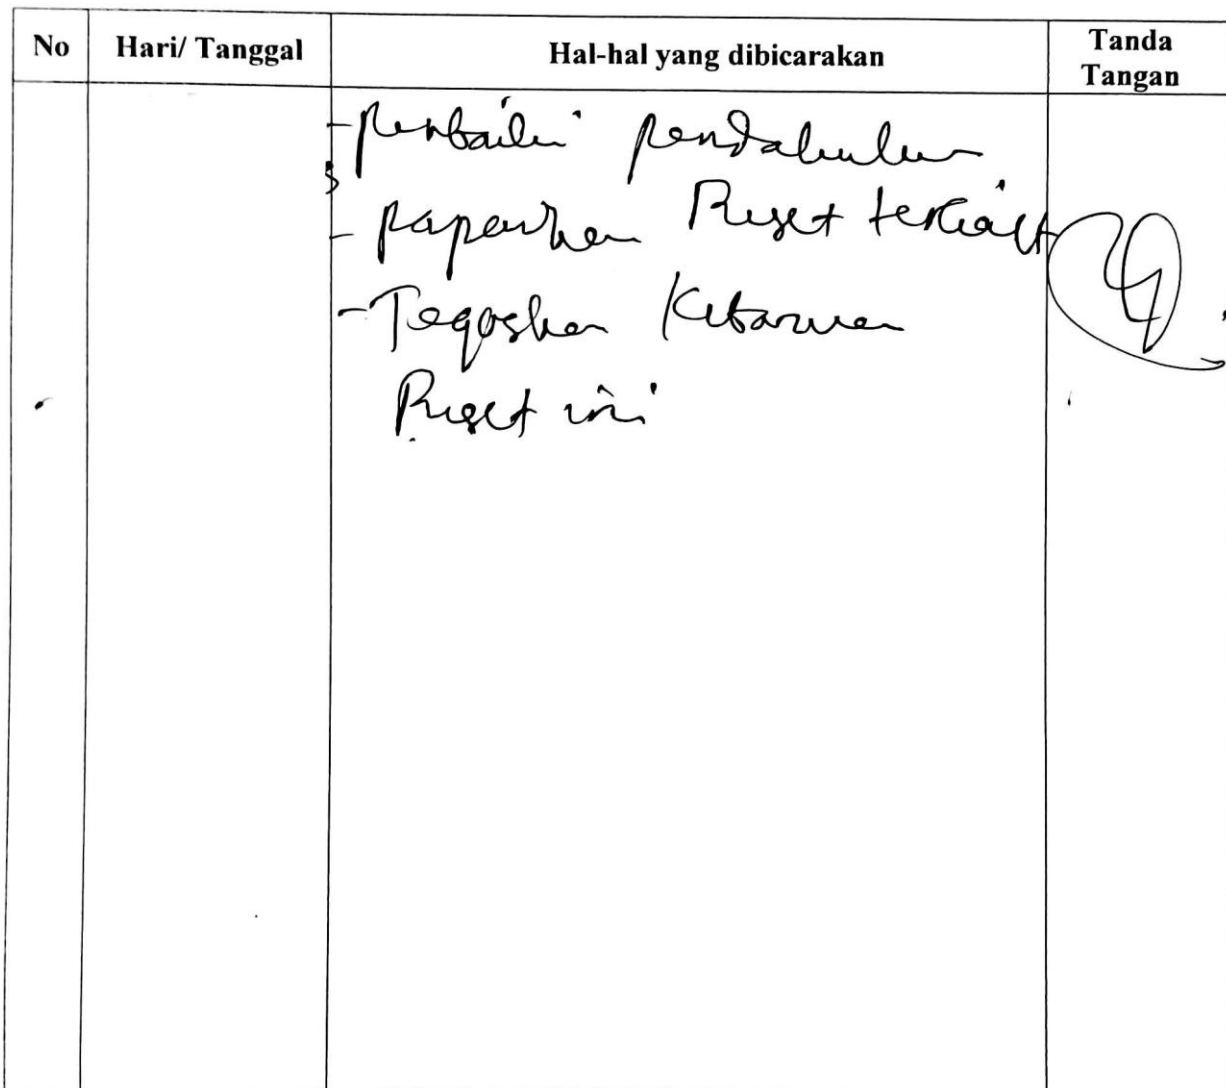 No Hari/ Tanggal Hal-hal yang dibicarakan Tanda Tangan
- perbaiki pendahuluan
- paparkan Riset terkait
- Tegaskan Kebaruan
Riset ini